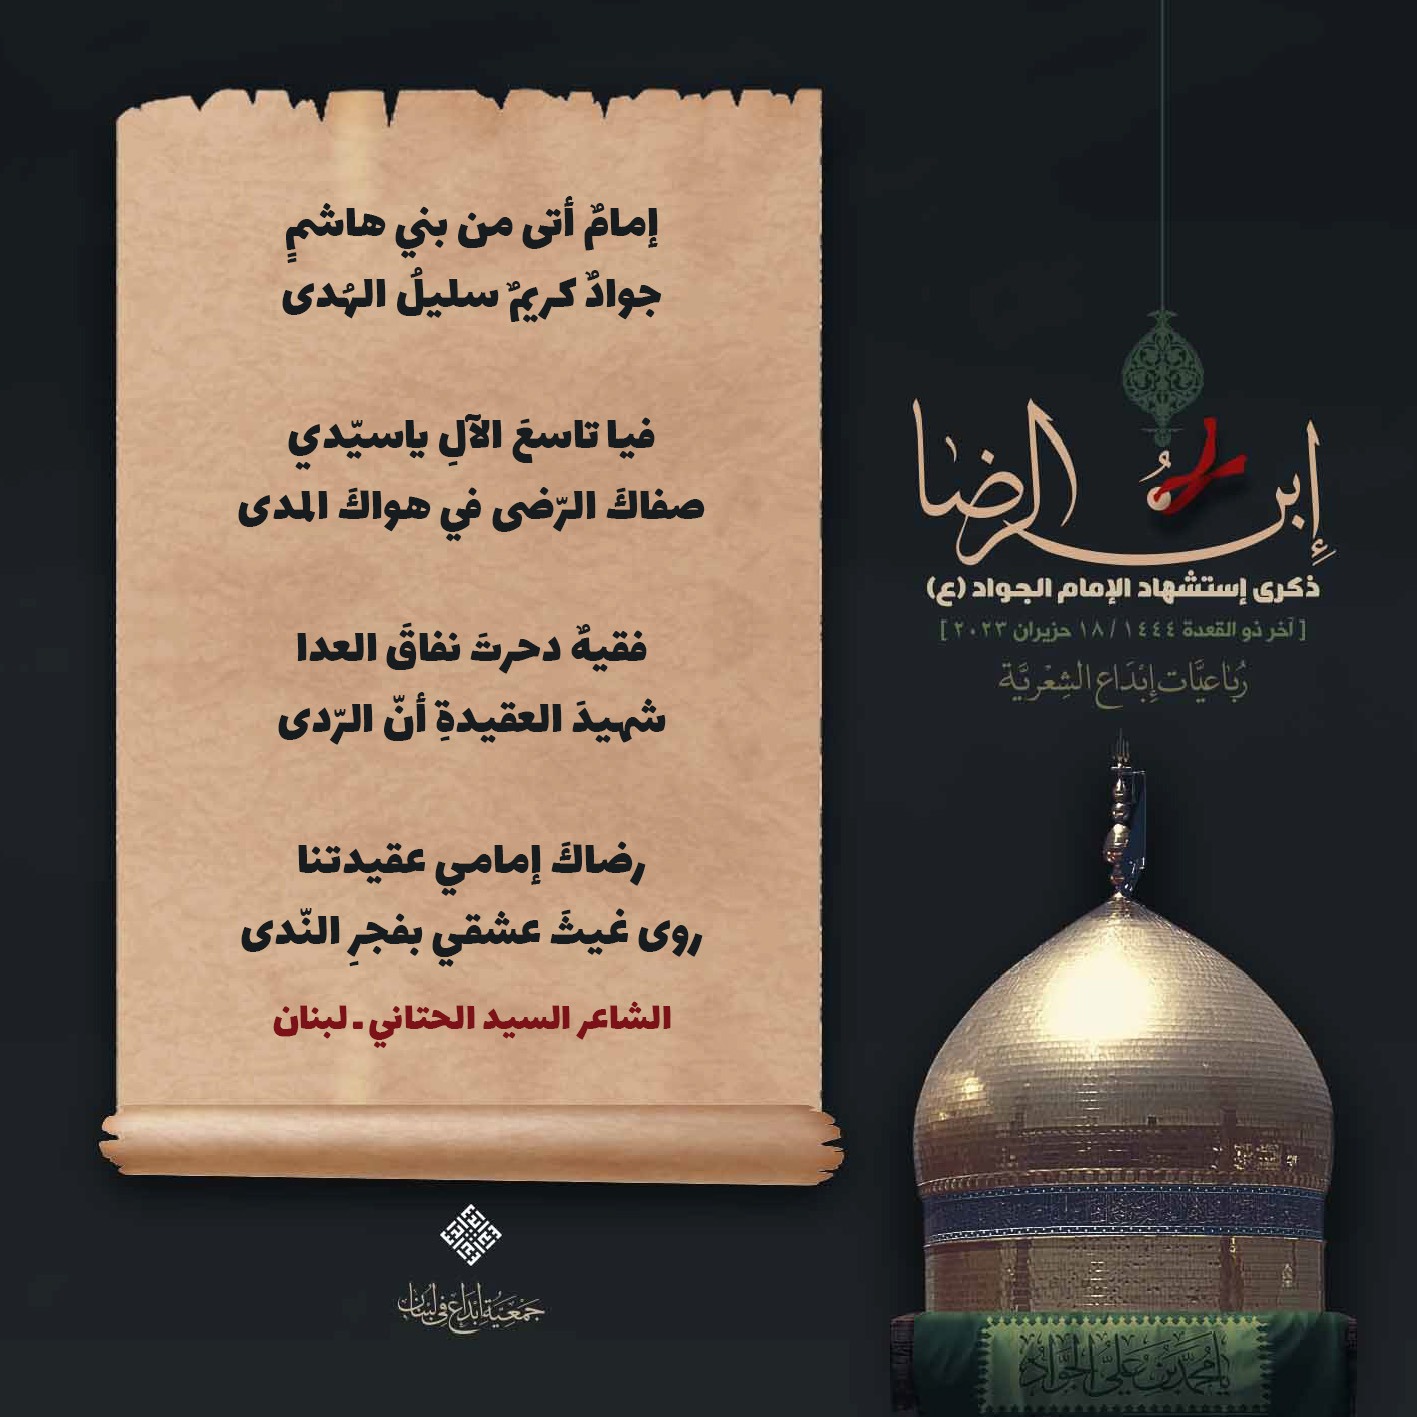 إمامٌ أتى من بني هاشمٍ
جوادٌ كريمٌ سليلُ الهُدى
فيا تاسعَ الآلِ ياسيّدي
صفاكَ الرّضى في هواكَ المدى
فقيهٌ دحرتَ نفاقَ العدا
شهيدَ العقيدةِ أنّ الرّدى
رضاكَ إمامي عقيدتنا
روى غيثَ عشقي بفجرِ النّدى
الشاعر السيد الحتاني ـ لبنان
إِبنُ الرضا
ذكرى إستشهاد الإمام الجواد (ع)
[ آخر ذو القعدة ١٤٤٤ / ١٨ حزيران ٢٠٢٣ ]
رُبَاعيَّات إِبْدَاع الشِعْريَّة
يا مُحَمَّد بن عَلي الجَوَاد
جَمْعِيَّة إبْدَاع في لُبْنَان